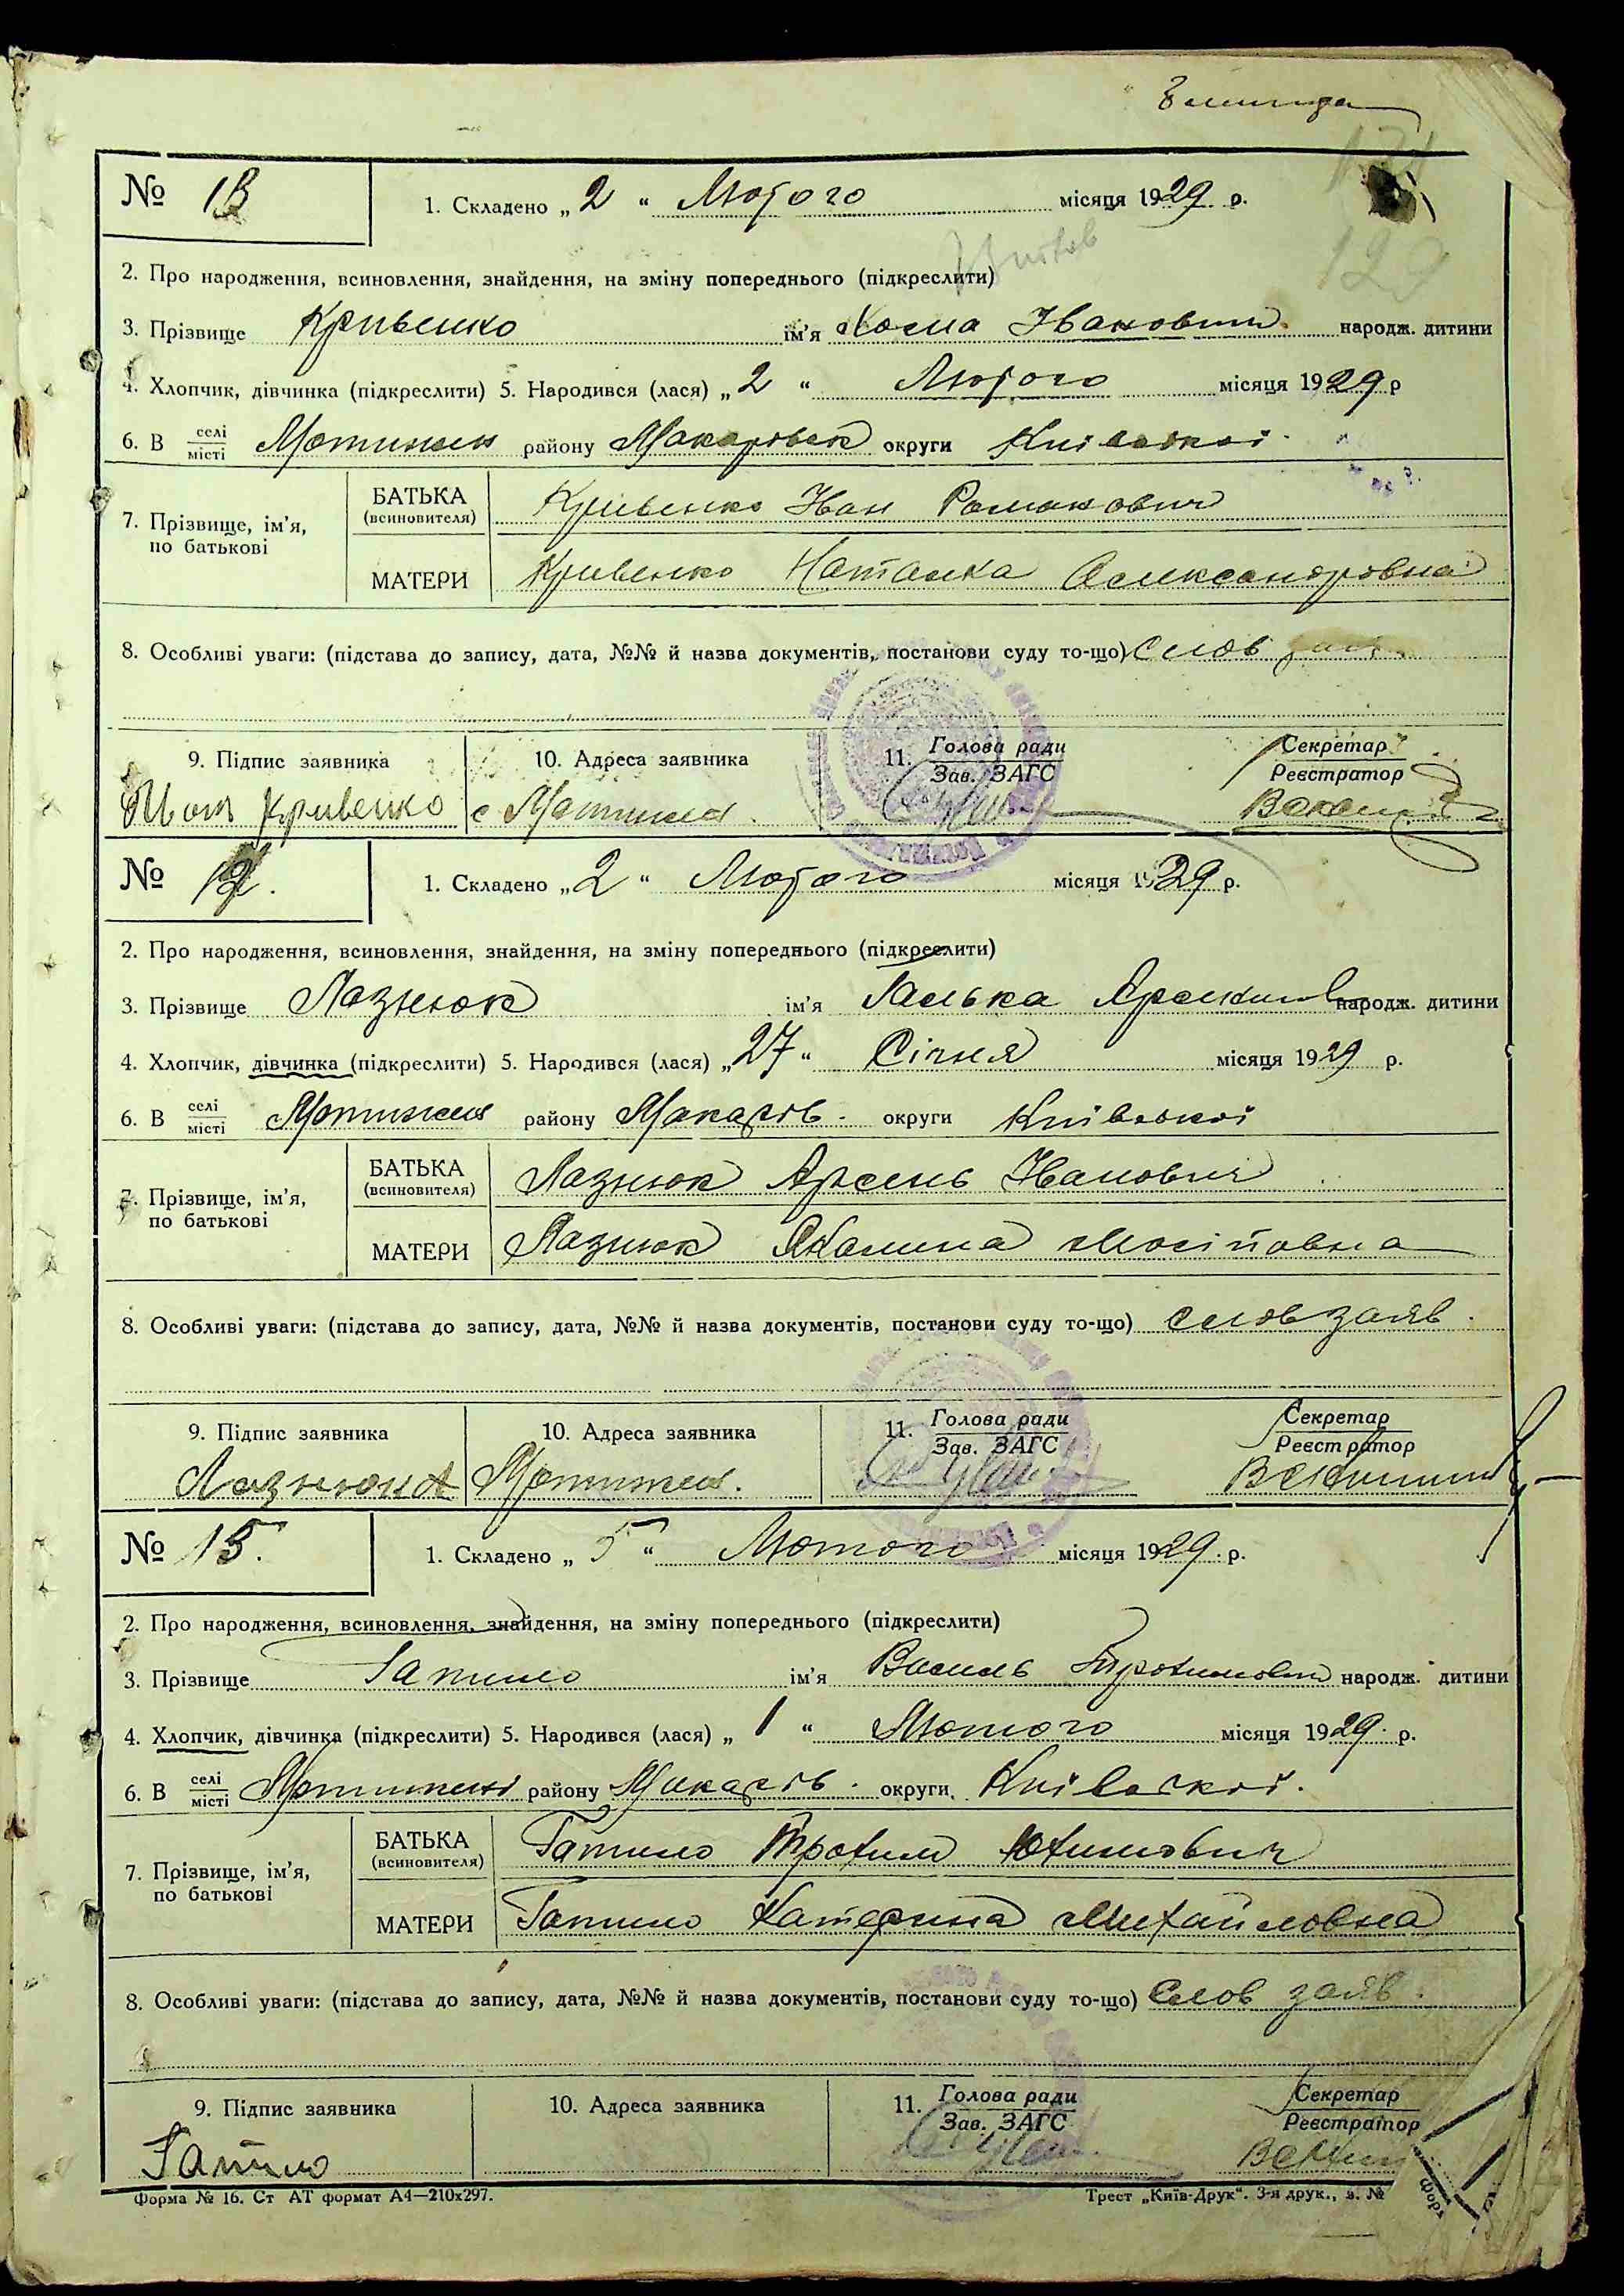 № 13
1. Складено „ 2 “ Лютого місяця 1929 р.
2. Про народження, всиновлення, знайдення, на зміну попереднього (підкреслити)
3. Прізвище Кривенко ім'я Івановин народж. дитини
4. Хлопчик, дівчинка (підкреслити) 5. Народився (лася) „ 2 “ Лютого місяця 1929 р
6. В селі/місті Мотижин району Макарівськ округи Київської
7. Прізвище, ім'я, по батькові
БАТЬКА (всиновителя) Кривенко Іван Романович
МАТЕРИ Кривенко Наталка Олександровна
8. Особливі уваги: (підстава до запису, дата, №№ й назва документів, постанови суду то-що) Слов
9. Підпис заявника 10. Адреса заявника 11. Голова ради Секретар
Зав. ЗАГС Реєстратор
Кривенко с Мотижин
№
1. Складено „ 2 “ Лютого місяця 1929 р.
2. Про народження, всиновлення, знайдення, на зміну попереднього (підкреслити)
3. Прізвище Лазнюк ім'я Галька народж. дитини
4. Хлопчик, дівчинка (підкреслити) 5. Народився (лася) „ 27 “ Січня місяця 1929 р.
6. В селі/місті Мотижин району Макарів. округи Київської
7. Прізвище, ім'я, по батькові
БАТЬКА (всиновителя) Лазнюк Арсень Іванович
МАТЕРИ Лазнюк Йосіповна
8. Особливі уваги: (підстава до запису, дата, №№ й назва документів, постанови суду то-що) слов заяв.
9. Підпис заявника 10. Адреса заявника 11. Голова ради Секретар
Зав. ЗАГС Реєстратор
Лазнюк А Мотижин.
№ 15.
1. Складено „ 5 “ Лютого місяця 1929 р.
2. Про народження, всиновлення, знайдення, на зміну попереднього (підкреслити)
3. Прізвище Гатило ім'я Василь Трохимович народж. дитини
4. Хлопчик, дівчинка (підкреслити) 5. Народився (лася) „ 1 “ Лютого місяця 1929 р.
6. В селі/місті Мотижині району Макарів. округи Київської.
7. Прізвище, ім'я, по батькові
БАТЬКА (всиновителя) Гатило Трохим Юхимович
МАТЕРИ Гатило Катерина Михайловна
8. Особливі уваги: (підстава до запису, дата, №№ й назва документів, постанови суду то-що) Слов заяв.
9. Підпис заявника 10. Адреса заявника 11. Голова ради Секретар
Зав. ЗАГС Реєстратор
Гатило
Форма № 16. Ст АТ формат А4—210х297. Трест „Київ-Друк“. 3-я друк., з. №